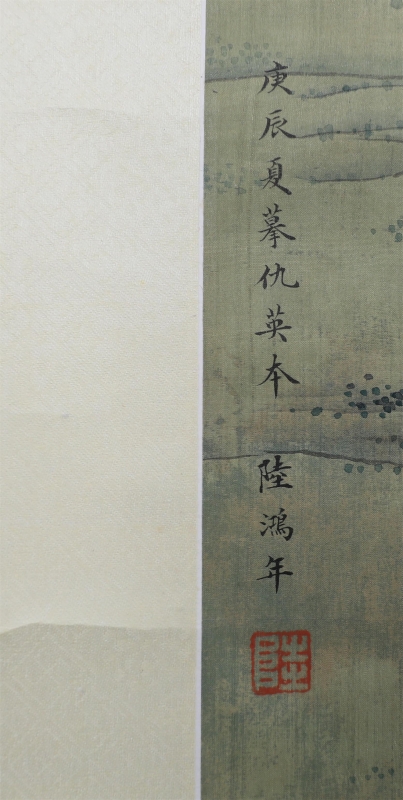 庚辰夏摹仇英本　陸鴻年